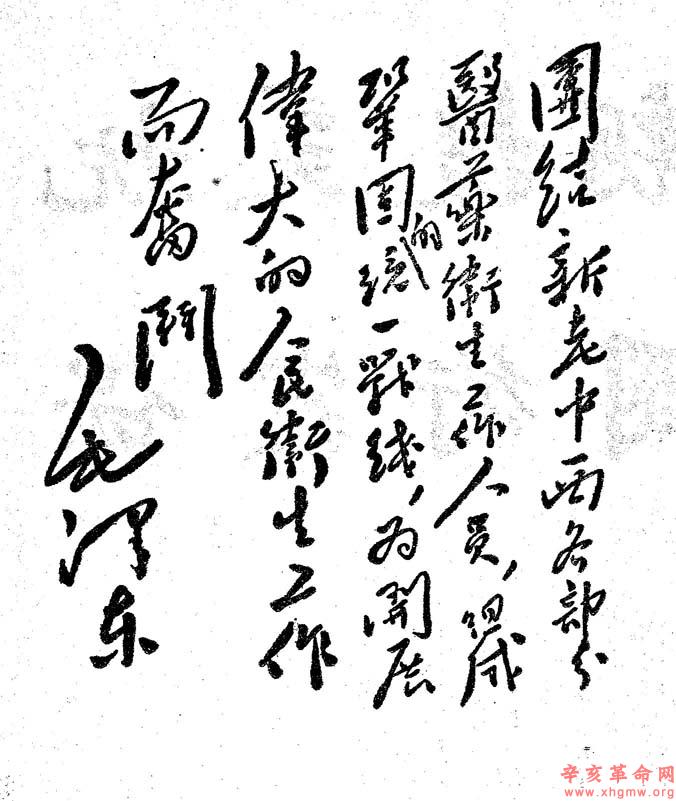 團結新老中西各部分
醫藥衛生工作人员，组成
鞏固的统一戰线，为開展
偉大的人民衛生工作
而奮鬥
毛泽东
辛亥革命网
www.xhgmw.org